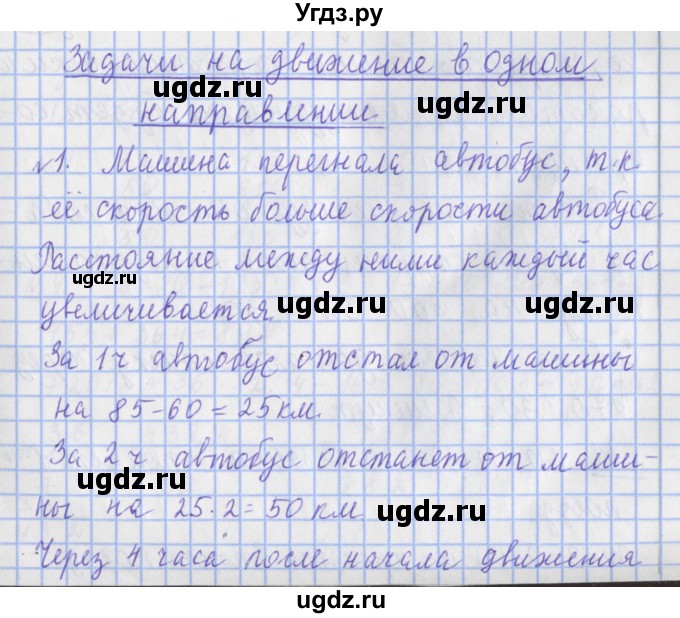 Угдз.ру
Задачи на движение в одном
ugdz.ru ugdz.ru
направлении
№1. Машина перегнала автобус, т.к
её скорость больше скорости автобуса
Расстояние между ними каждый час
ugdz.ru
увеличивается.
ugdz.ru ugdz.ru
За 1 ч автобус отстал от машины
на 85-60=25км.
За 2 ч автобус отстанет от маши-
ugdz.ru
ны на 25·2=50 км
ugdz.ru
Через 4 часа после начала движения
ugdz.ru